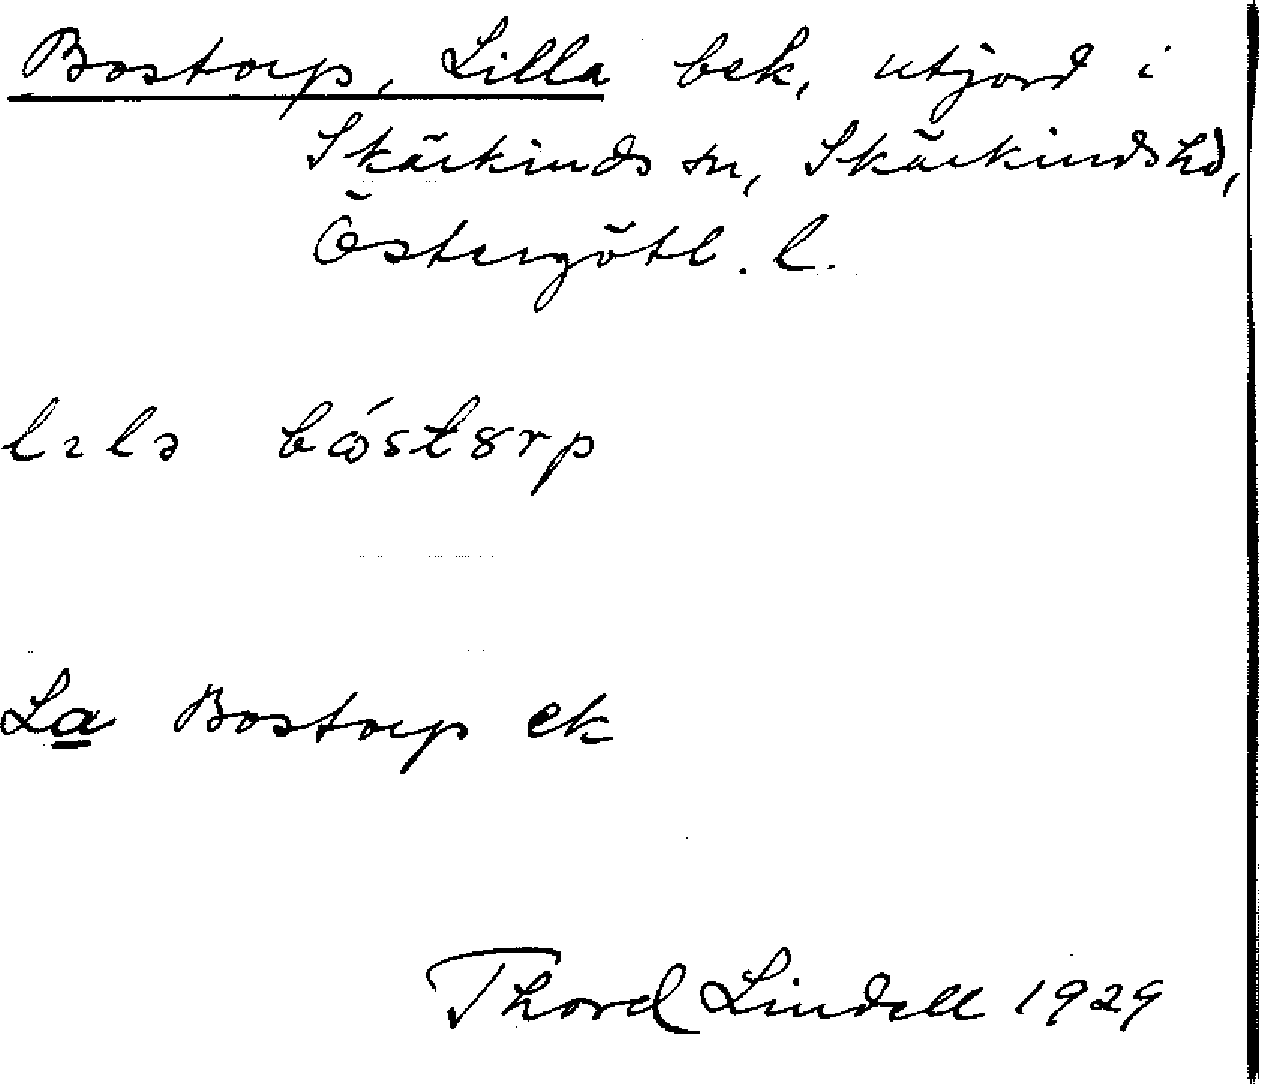 Bostorp, Lilla bek, utjord i
Skärkinds sn, Skärkinds hd,
Östergötl. l.
La Bostorp ek
Thord Lindell 1929